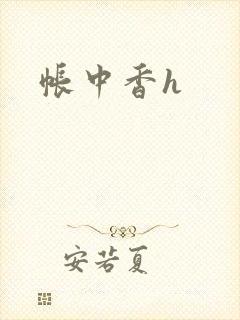 帳中香h
安若夏